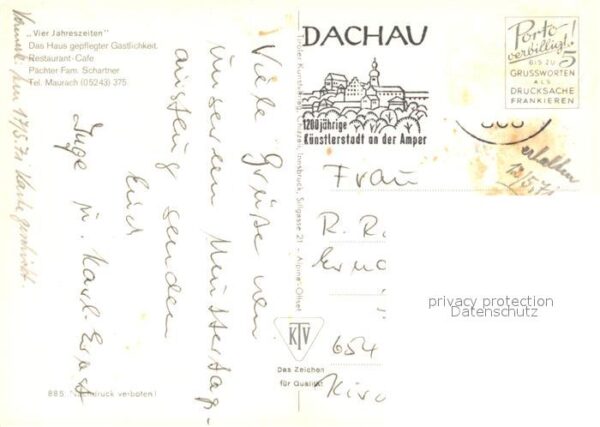 "Vier Jahreszeiten"
Das Haus gepflegter Gastlichkeit.
Restaurant-Cafe
Pächter Fam. Schartner
Tel. Maurach (05243) 375.
17/5.71 Karte
Viele Grüße von
unserem Muttertag-
ausflug senden
Euch
Inge u. Karl-Ernst
885 Nachdruck verboten!
Tiroler Kunstverlag Chizzali, Innsbruck, Sillgasse 21 - Alpine-Offset
KTV
Das Zeichen
für Qualität
DACHAU
1200jährige
Künstlerstadt an der Amper
Porto-
verbilligt!
BIS ZU 5
GRUSSWORTEN
ALS
DRUCKSACHE
FRANKIEREN
erhalten
13/5.71
Frau
R. R
654
Kirc
privacy protection
Datenschutz